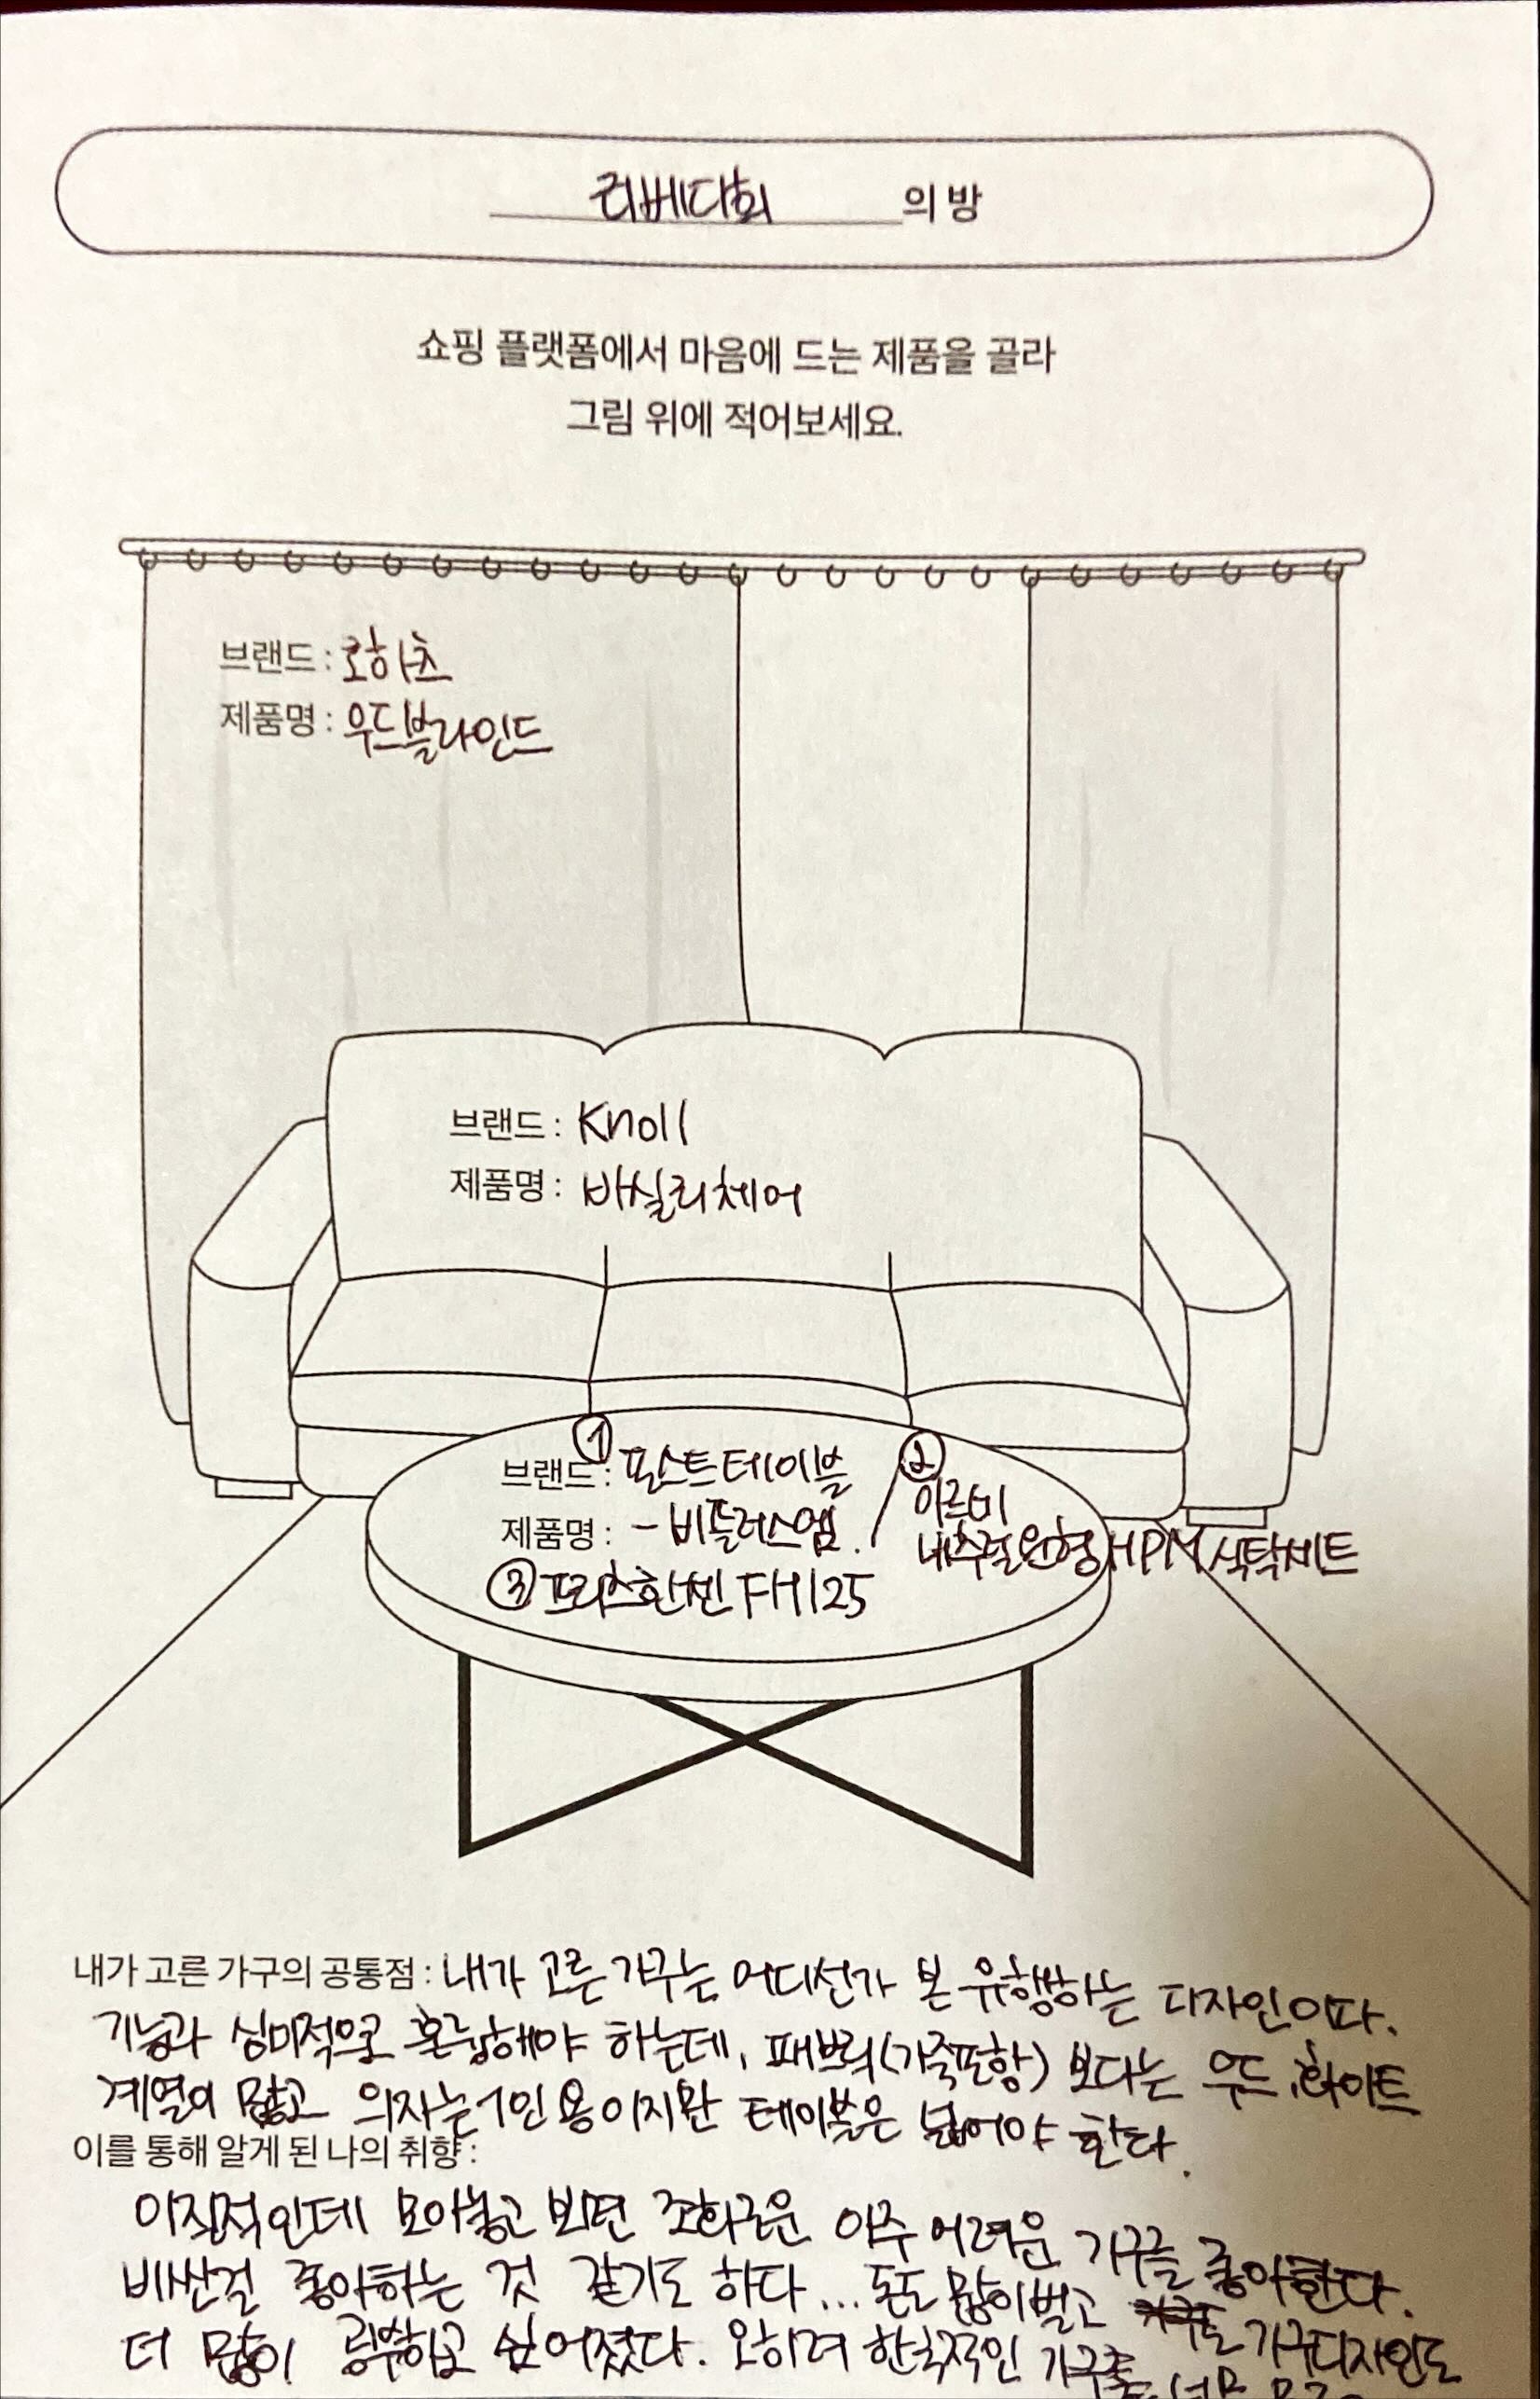 리베다회 의 방
쇼핑 플랫폼에서 마음에 드는 제품을 골라
그림 위에 적어보세요.
브랜드 : 로하츠
제품명 : 우드블라인드
브랜드 : Knoll
제품명 : 바실리체어
①
브랜드 : 퍼스트테이블
제품명 : - 비플러스엠. /
②
아르비
내추럴원형HPM식탁세트
③프리츠한센 FH125
내가 고른 가구의 공통점 : 내가 고른 가구는 어디선가 본 유행하는 디자인이다.
기능과 심미적으로 훌륭해야 하는데, 패브릭(가죽포함) 보다는 우드, 화이트
계열이 많고 의자는 1인용이지만 테이블은 넓어야 한다.
이를 통해 알게 된 나의 취향 :
이질적인데 모아놓고 보면 조화로운 아주 어려운 가구를 좋아한다.
비싼걸 좋아하는 것 같기도 하다... 돈도 많이벌고 가구디자인도
더 많이 공부하고 싶어졌다. 오히려 한국적인 가구를